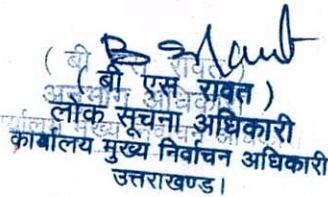 ( बी एस रावत )
लोक सूचना अधिकारी
कार्यालय मुख्य निर्वाचन अधिकारी
उत्तराखण्ड।